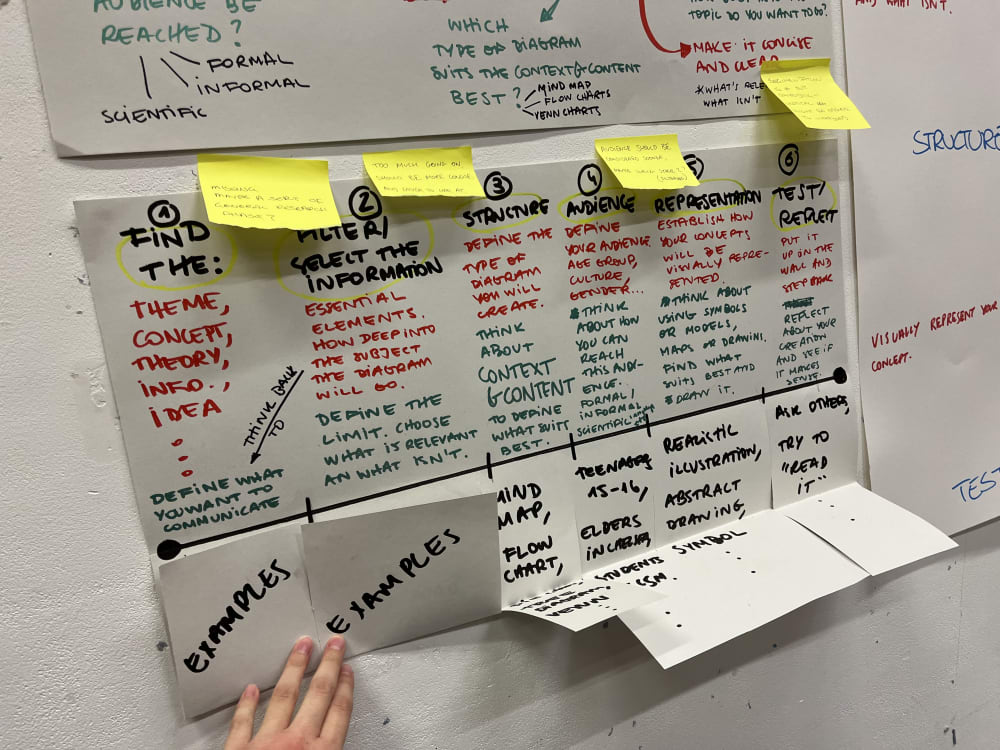 AUDIENCE BE
REACHED?
FORMAL
INFORMAL
SCIENTIFIC
WHICH
TYPE OF DIAGRAM
SUITS THE CONTEXT & CONTENT
BEST?
MIND MAP
FLOW CHARTS
VENN CHARTS
TOPIC DO YOU WANT TO DO?
MAKE IT CONCISE
AND CLEAR
*WHAT'S
WHAT ISN'T
AND WHAT ISN'T.
STRUCTURE
VISUALLY REPRESENT YOUR
CONCEPT.
TEST
MISSING
MAYBE A SORT OF
GENERAL RESEARCH
PHASE?
TOO MUCH GOING ON
SHOULD BE MORE CONCISE
AUDIENCE SHOULD BE
CONSIDERED SOONER,
1
FIND
THE:
THEME,
CONCEPT,
THEORY,
INFO.,
IDEA
.
.
.
DEFINE WHAT
YOU WANT TO
COMMUNICATE
THINK BACK
TO
2
FILTER/
SELECT THE
INFORMATION
ESSENTIAL
ELEMENTS.
HOW DEEP INTO
THE SUBJECT
THE DIAGRAM
WILL GO.
DEFINE THE
LIMIT. CHOOSE
WHAT IS RELEVANT
AN WHAT ISN'T.
3
STRUCTURE
DEFINE THE
TYPE OF
DIAGRAM
YOU WILL
CREATE.
THINK
ABOUT
CONTEXT
& CONTENT
TO DEFINE
WHAT SUITS
BEST.
4
AUDIENCE
DEFINE
YOUR AUDIENCE.
AGE GROUP,
CULTURE,
GENDER...
THINK
ABOUT HOW
YOU CAN
REACH
THIS AUDI-
ENCE.
FORMAL/
INFORMAL
SCIENTIFIC
5
REPRESENTATION
ESTABLISH HOW
YOUR CONCEPTS
WILL BE
VISUALLY REPRE-
SENTED.
THINK ABOUT
USING SYMBOLS
OR MODELS,
MAPS OR DRAWING.
FIND WHAT
SUITS BEST AND
DRAW IT.
6
TEST/
REFLET
PUT IT
UP ON THE
WALL AND
STEP BACK
REFLECT
ABOUT YOUR
CREATION
AND SEE IF
IT MAKES
SENSE.
EXAMPLES
EXAMPLES
MIND
MAP,
FLOW
CHART,
TEENAGERS
15-16,
ELDERS
STUDENTS
CSM.
REALISTIC
ILLUSTRATION,
ABSTRACT
DRAWING,
SYMBOL
.
.
.
ASK OTHERS,
TRY TO
"READ
IT"
.
.
.